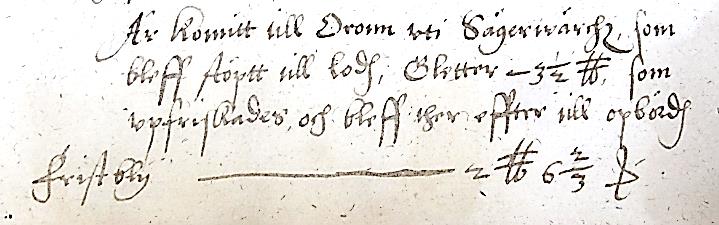 Är Komitt till Oronn vti Sägerwärchz, som
bleff stöptt till lodh, Gletter — 3½ ℔, som
vpfriskades, och bleff ther effter till opbördh
Frist blÿ — 2 ℔ 6 2/3